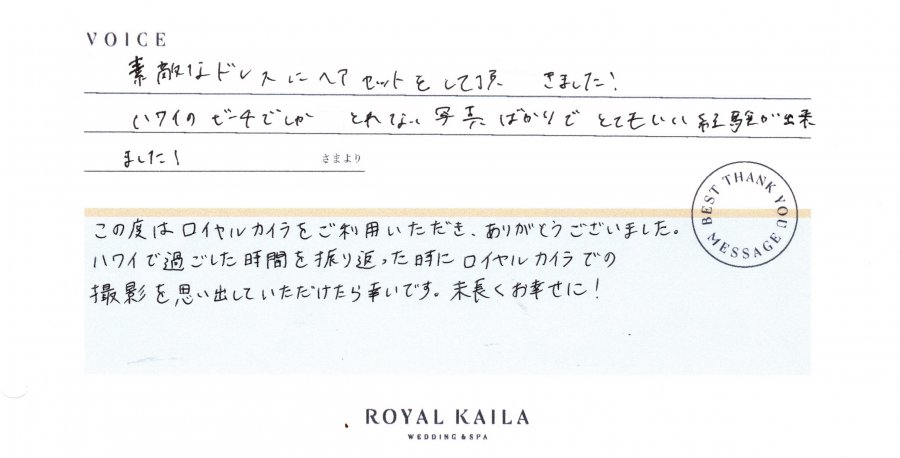 VOICE
素敵なドレスにヘアセットをして頂きました！
ハワイのビーチでしかとれない写真ばかりでとてもいい経験が出来
ました！
さまより
BEST THANK YOU MESSAGE
この度はロイヤルカイラをご利用いただき、ありがとうございました。
ハワイで過ごした時間を振り返った時にロイヤルカイラでの
撮影を思い出していただけたら幸いです。末長くお幸せに！
ROYAL KAILA
WEDDING & SPA